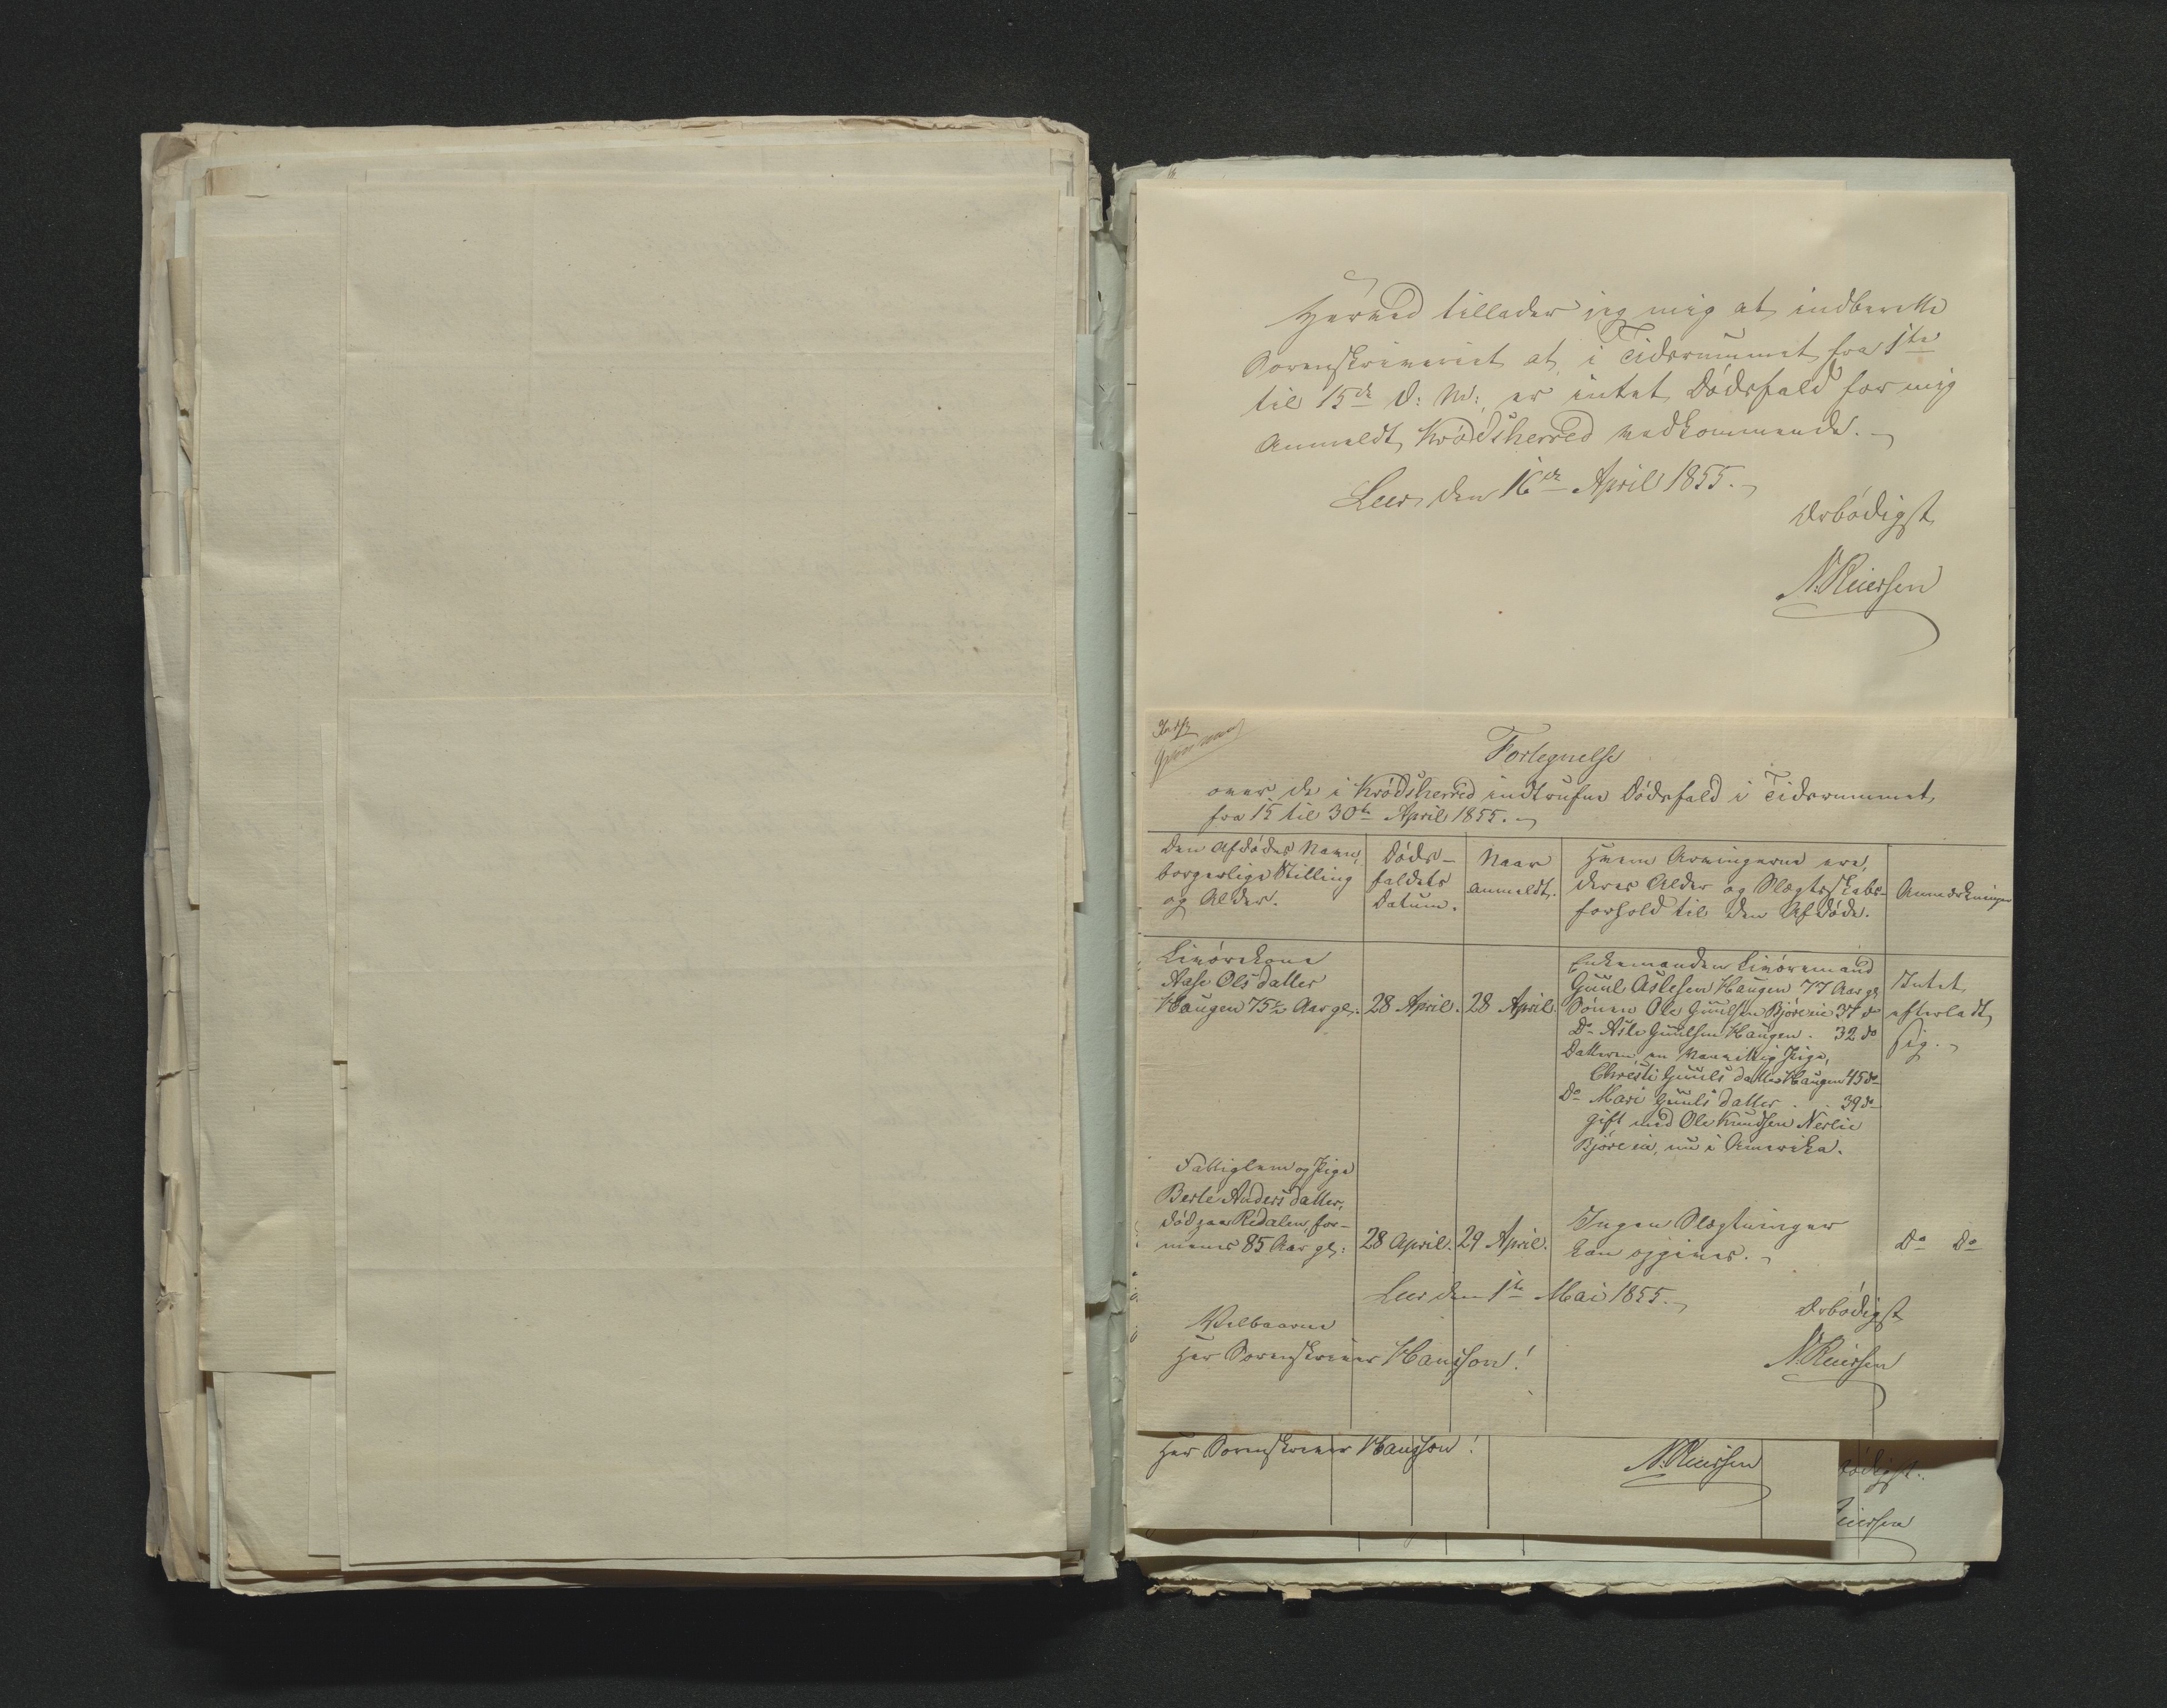 Herved tillader jeg mig at indberette
Sorenskriveriet at i Tidsrummet fra 1ste
til 15de d: M: er intet Dödsfald for mig
Anmeldt, Krödsherred vedkommende.
Leer den 16de April 1855.
Ærbödigst
N. Reiersen
Fortegnelse
over de i Krödsherred indtrufne Dödsfald i Tidsrummet
fra 15 til 30te April 1855.
Den Afdödes Navn,
borgerlige Stilling
og Alder.
Döds-
faldets
Datum.
Naar
anmeldt.
Hvem Arvingerne ere,
deres Alder og Slægtskabs-
forhold til den Afdöde.
Anmærkninger
Livörekone
Aase Olsdatter
Haugen 75 Aar gl.
28 April.
28 April.
Enkemanden Livöremand
Guul Aslesen Haugen 77 Aar gl
Sönnen Ole Guulsen Björeie 37 do
Do Asle Guulsen Haugen . 32 do
Datteren, en Pige,
Christi Guulsdatter Haugen 45 do
Do Mari Guulsdatter . . 39 do
gift med Ole Knudsen Nerlie
Björeie, nu i Amerika.
Intet
efterladt
sig.
Fattiglem og Pige
Berte Andersdatter,
död paa Redalen for-
menes 85 Aar gl:
28 April.
29 April.
Ingen Slægtninger
kan opgives.
Do Do
Leer den 1te Mai 1855.
Ærbödigst
Velbaarne
Her Sorenskriver Hansson!
N. Reiersen
Her Sorenskriver Hansson!
N. Reiersen
bödigst.
eiersen